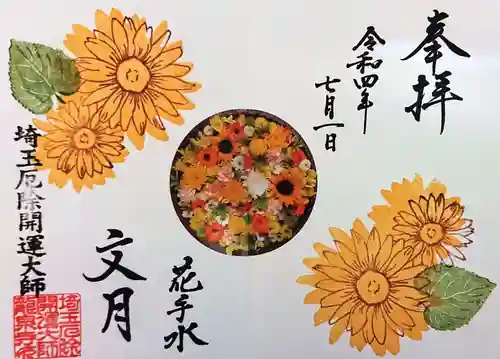 奉拝
令和四年
七月一日
花手水
文月
埼玉厄除開運大師
埼玉厄除
開運大師
龍泉寺